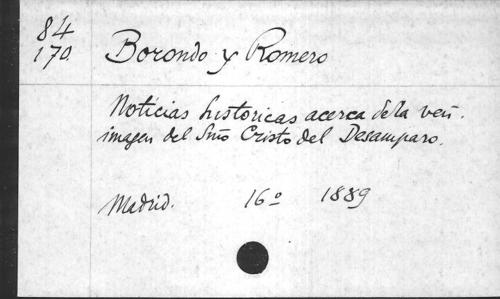 84
170.
Borondo y Romero
Noticias historicas acerca de la ven.
imagen del Smo Cristo del Desamparo.
Madrid. 16º 1889